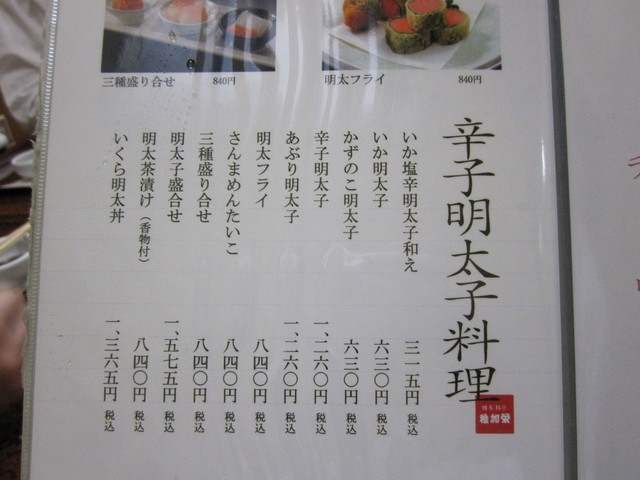 三種盛り合せ 840円
明太フライ 840円
辛子明太子料理
いか塩辛明太子和え 三一五円 税込
いか明太子 六三〇円 税込
かずのこ明太子 六三〇円 税込
辛子明太子 一、二六〇円 税込
あぶり明太子 一、二六〇円 税込
明太フライ 八四〇円 税込
さんまめんたいこ 八四〇円 税込
三種盛り合せ 八四〇円 税込
明太子盛合せ 一、五七五円 税込
明太茶漬け（香物付） 八四〇円 税込
いくら明太丼 一、三六五円 税込